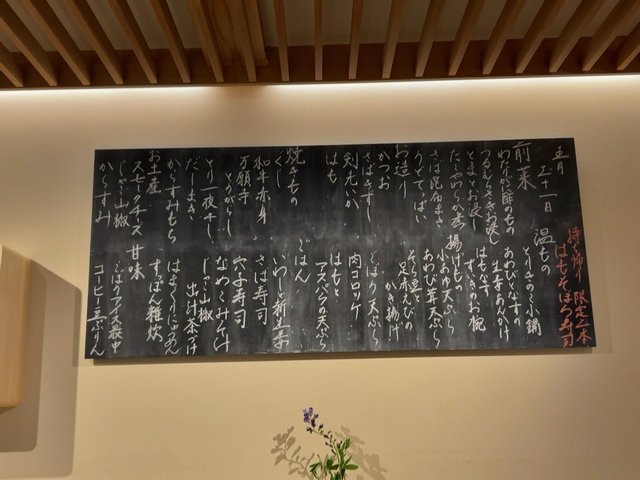 持ち帰り 限定二本
はもそぼろ寿司
五月
三十一日
前菜
わたりがに酢もの
つるむらさきお浸し
とまとお浸し
たこやわらか煮
さば昆布まき
うざく
お造り
かつお
さばきずし
剣先いか
はも
焼きもの
ぐじ
和牛赤身
万願寺とうがらし
とり一夜干し
だしまき
からすみもち
お土産
スモークチーズ
じゃこ山椒
からすみ
温もの
とりきのこ小鍋
あわびとなすの
生芋あんかけ
はもなす
すずきのお椀
揚げもの
小あゆ天ぷら
あわび茸天ぷら
そら豆と
足赤えびの
かき揚げ
ごぼう天ぷら
肉コロッケ
はもと
アスパラの天ぷら
ごはん
いわしと新生姜
さば寿司
穴子寿司
なめこみそ汁
じゃこ山椒
出汁茶づけ
はまぐりにゅうめん
すっぽん雑炊
甘味
ごぼうアイス最中
コーヒー豆ぷりん